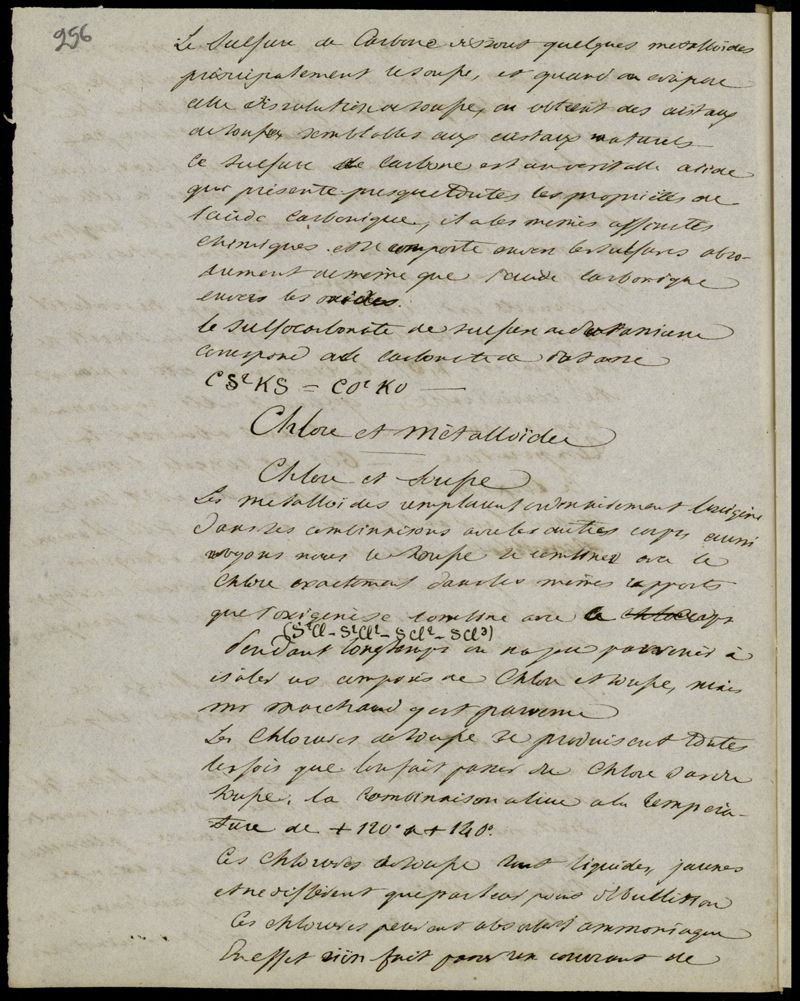 256
Le Sulfure de Carbone dissout quelques metalloïdes
principalement le soufre, et quand on évapore
cette dissolution de soufre, on obtient des cristaux
de soufre semblables aux cristaux naturels
Ce sulfure de Carbone est un veritable acide
qui présente presque toutes les propriétés de
l'acide Carbonique, il a les mêmes affinités
chimiques et se comporte envers les sulfures abso-
-lument de même que l'acide Carbonique
envers les oxides.
le Sulfocarbonate de sulfure de potassium
correspond au carbonate de potasse
CS²KS = CO²KO —
Chlore et métalloïdes
Chlore et soufre
Les metalloïdes remplacent ordinairement l'oxigène
dans ses combinaisons avec les autres corps aussi
voyons nous le soufre se combiner avec le
Chlore exactement dans les mêmes rapports
que l'oxigène se combine avec le
(S²Cl - S²Cl² - SCl² - SCl³)
Pendant longtemps on n'a pu parvenir à
isoler ces composés de Chlore et soufre, mais
mr marchand y est parvenu
Les Chlorures de soufre se produisent toutes
les fois que l'on fait passer du Chlore sur du
soufre; la Combinaison a lieu a la tempéra-
-ture de +120° a +140°.
Ces Chlorures de soufre sont liquides, jaunes
et ne diffèrent que par leur point d'ébullition
Ces chlorures peuvent absorber l'ammoniaque
En effet si l'on fait passer un courant de